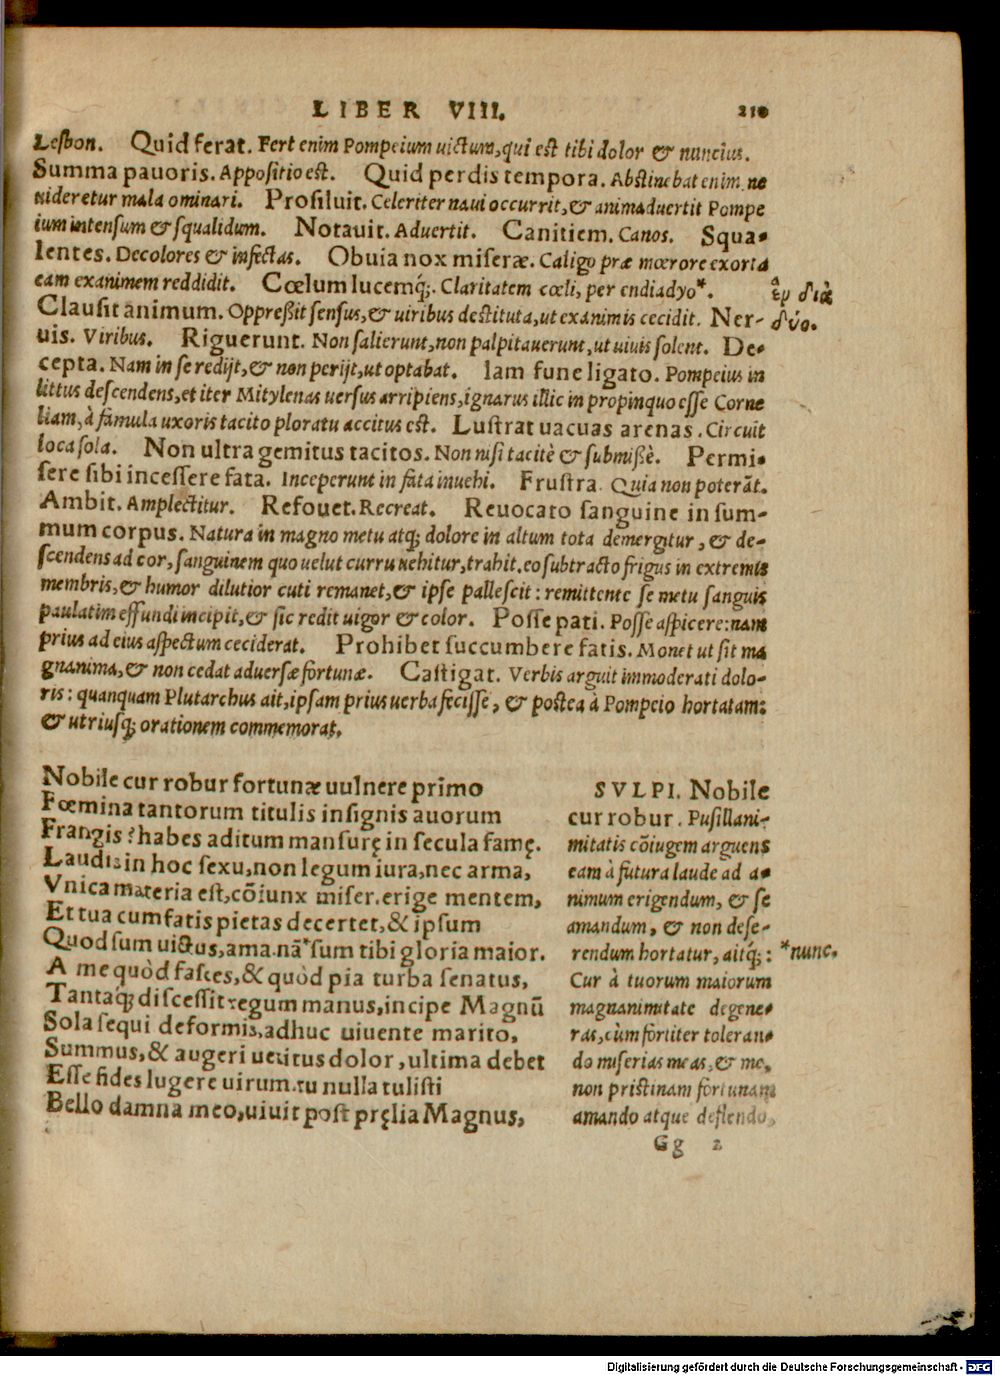 LIBER VIII. 210
Lesbon. Quid ferat. Fert enim Pompeium uictum, qui est tibi dolor & nuncius.
Summa pauoris. Appositio est. Quid perdis tempora. Abstinebat enim ne
uideretur mala ominari. Prosiluit. Celeriter naui occurrit, & animaduertit Pompe
ium intensum & squalidum. Notauit. Aduertit. Canitiem. Canos. Squa-
lentes. Decolores & infectas. Obuia nox miseræ. Caligo præ mœrore exorta
eam exanimem reddidit. Cœlum lucemq́;. Claritatem cœli, per endiadyo*.
Clausit animum. Oppreßit sensus, & uiribus destituta, ut exanimis cecidit. Ner-
uis. Viribus. Riguerunt. Non salierunt, non palpitauerunt, ut uiuis solent. De-
cepta. Nam in se redijt, & non perijt, ut optabat. Iam fune ligato. Pompeius in
littus descendens, et iter Mitylenas uersus arripiens, ignarus illic in propinquo esse Corne
liam, à famula uxoris tacito ploratu accitus est. Lustrat uacuas arenas. Circuit
loca sola. Non ultra gemitus tacitos. Non nisi tacitè & submißè. Permi-
sere sibi incessere fata. Inceperunt in fata inuehi. Frustra. Quia non poterãt.
Ambit. Amplectitur. Refouet. Recreat. Reuocato sanguine in sum-
mum corpus. Natura in magno metu atq; dolore in altum tota demergitur, & de-
scendens ad cor, sanguinem quo uelut curru uehitur, trahit. eo subtracto frigus in extremis
membris, & humor dilutior cuti remanet, & ipse pallescit: remittente se metu sanguis
paulatim effundi incipit, & sic redit uigor & color. Posse pati. Posse aspicere: nam
prius ad eius aspectum ceciderat. Prohibet succumbere fatis. Monet ut sit ma
gnanima, & non cedat aduersæ fortunæ. Castigat. Verbis arguit immoderati dolo-
ris: quanquam Plutarchus ait, ipsam prius uerba fecisse, & postea à Pompeio hortatam:
& utriusq; orationem commemorat.
ἓν διὰ
δύο.
Nobile cur robur fortunæ uulnere primo
Fœmina tantorum titulis insignis auorum
Frangis? habes aditum mansurę in secula famę.
Laudis in hoc sexu, non legum iura, nec arma,
Vnica materia est, cõiunx miser. erige mentem,
Et tua cum fatis pietas decertet, & ipsum
Quod sum uictus, ama. nã* sum tibi gloria maior.
A me quòd fasces, & quòd pia turba senatus,
Tantaq́; discessit regum manus, incipe Magnũ
Sola sequi deformis, adhuc uiuente marito,
Summus, & augeri uetitus dolor, ultima debet
Esse fides lugere uirum. tu nulla tulisti
Bello damna meo, uiuit post pręlia Magnus,
SVLPI. Nobile
cur robur. Pusillani-
mitatis cõiugem arguens
eam à futura laude ad a-
nimum erigendum, & se
amandum, & non dese-
rendum hortatur, aitq́;:
Cur à tuorum maiorum
magnanimitate degene-
ras, cùm fortiter toleran-
do miserias meas, & me,
non pristinam fortunam
amando atque deflendo,
*nunc.
Gg 2
Digitalisierung gefördert durch die Deutsche Forschungsgemeinschaft - DFG